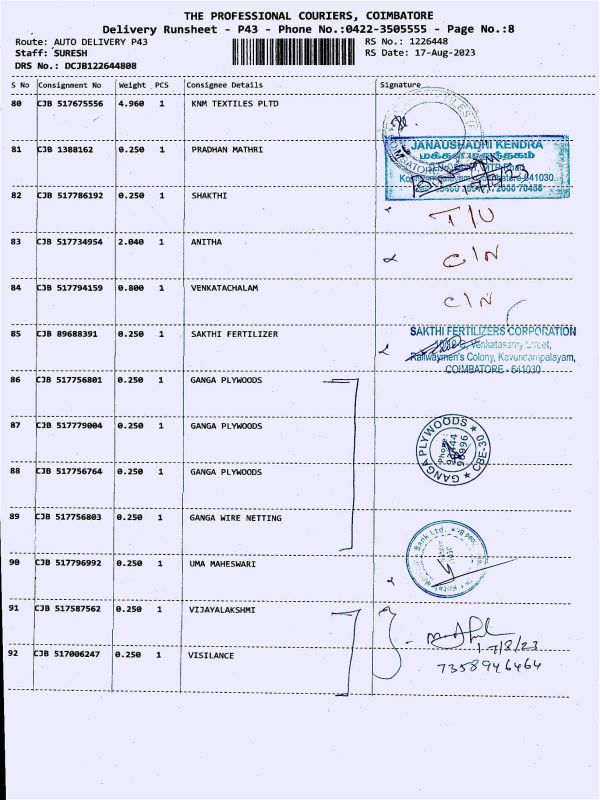 THE PROFESSIONAL COURIERS, COIMBATORE
Delivery Runsheet - P43 - Phone No.:0422-3505555 - Page No.:8
Route: AUTO DELIVERY P43 RS No.: 1226448
Staff: SURESH RS Date: 17-Aug-2023
DRS No.: DCJB122644808
S No Consignment No Weight PCS Consignee Details Signature
80 CJB 517675556 4.960 1 KNM TEXTILES PLTD
81 CJB 1388162 0.250 1 PRADHAN MATHRI
JANAUSHADHI KENDRA
மக்கள் மருந்தகம்
641030.
82 CJB 517786192 0.250 1 SHAKTHI
T/U
83 CJB 517734954 2.040 1 ANITHA
C/N
84 CJB 517794159 0.800 1 VENKATACHALAM
C/N
85 CJB 89688391 0.250 1 SAKTHI FERTILIZER
SAKTHI FERTILIZERS CORPORATION
Venkatasamy Street,
Railwaymen's Colony, Kavundampalayam,
COIMBATORE - 641030
86 CJB 517756801 0.250 1 GANGA PLYWOODS
87 CJB 517779004 0.250 1 GANGA PLYWOODS
GANGA PLYWOODS ★ CBE-30 ★
Phone:
88 CJB 517756764 0.250 1 GANGA PLYWOODS
89 CJB 517756803 0.250 1 GANGA WIRE NETTING
90 CJB 517796992 0.250 1 UMA MAHESWARI
Bank Ltd.
91 CJB 517587562 0.250 1 VIJAYALAKSHMI
17/8/23
7358946464
92 CJB 517006247 0.250 1 VISILANCE